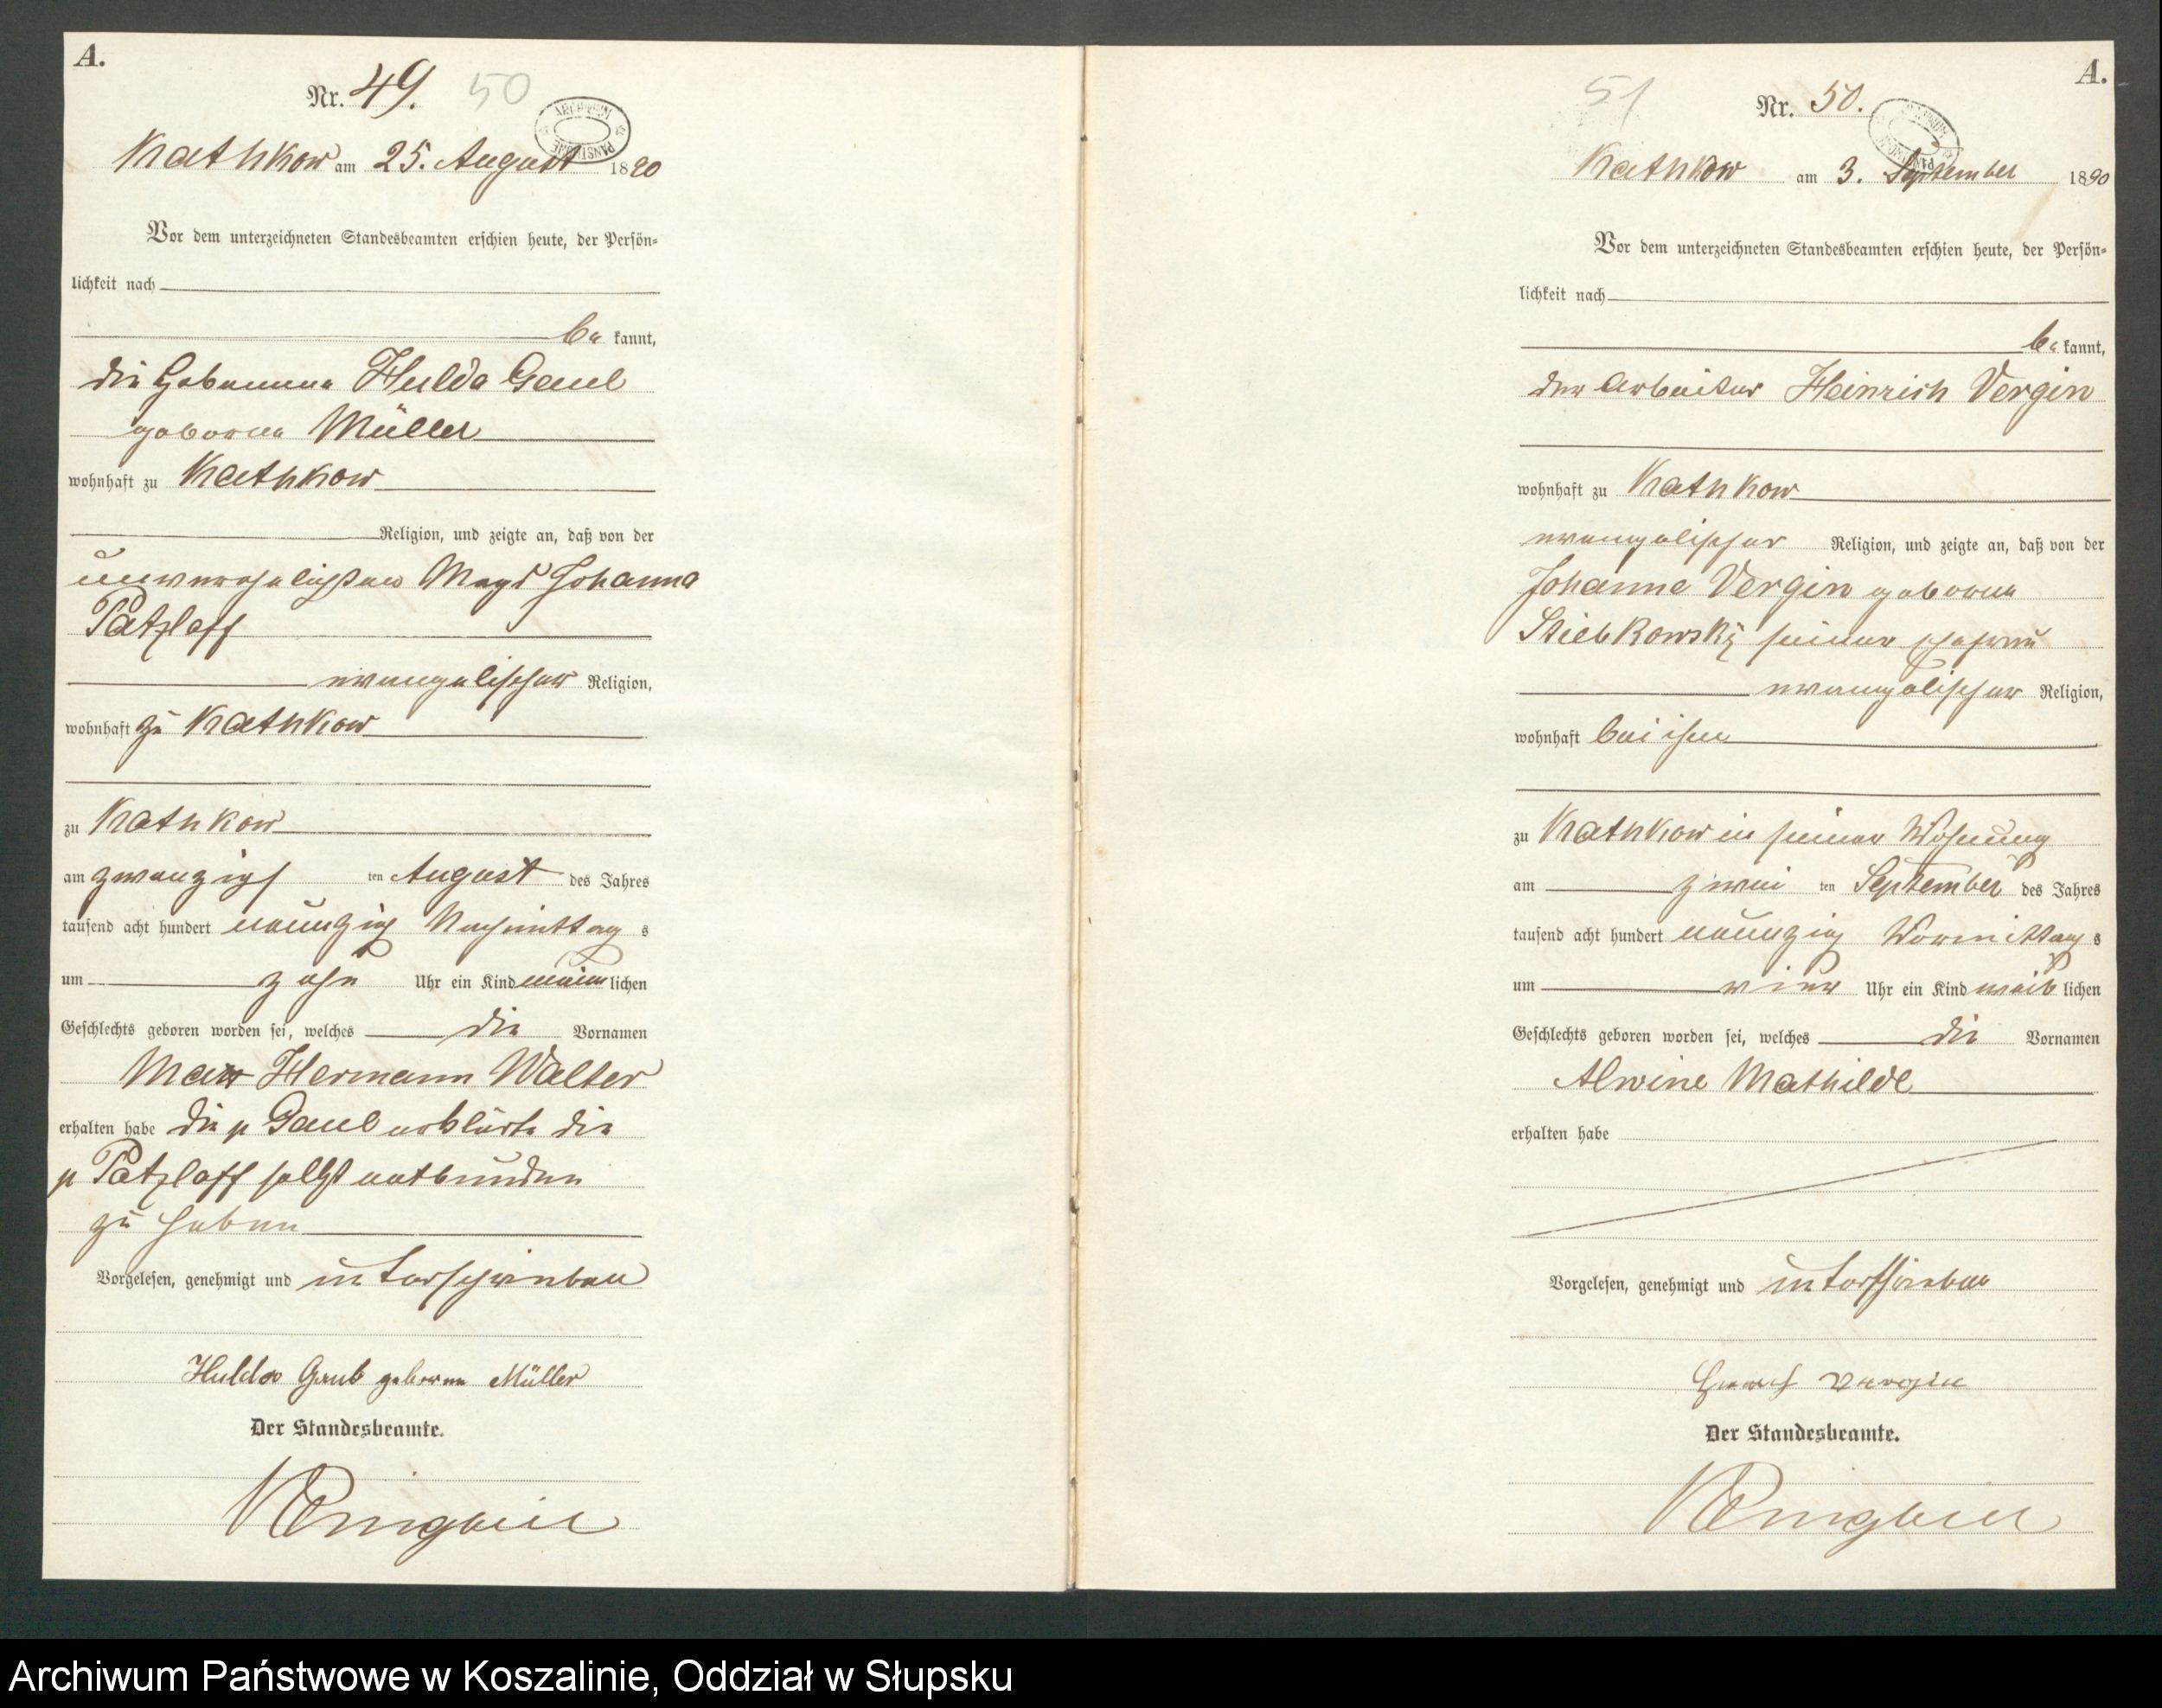 A.
Nr. 49. 50
ARCHIWUM PAŃSTWOWE
Kathkow am 25. August 1890
Vor dem unterzeichneten Standesbeamten erschien heute, der Persön-
lichkeit nach
be kannt,
die Hebamme Hulda Gaul
geborene Müller
wohnhaft zu Kathkow
Religion, und zeigte an, daß von der
unverehelichten Magd Johanna
Patzlaff
evangelischer Religion,
wohnhaft zu Kathkow
zu Kathkow
am zwanzigs ten August des Jahres
tausend acht hundert neunzig Nachmittag s
um zehn Uhr ein Kind männ lichen
Geschlechts geboren worden sei, welches die Vornamen
Max Hermann Walter
erhalten habe die p Gaul erklärte die
p Patzlaff selbst entbunden
zu haben
Vorgelesen, genehmigt und unterschrieben
Hulda Gaul geborene Müller
Der Standesbeamte.
A.
51 Nr. 50.
Kathkow am 3. September 1890
Vor dem unterzeichneten Standesbeamten erschien heute, der Persön-
lichkeit nach
be kannt,
der Arbeiter Heinrich Vergin
wohnhaft zu Kathkow
evangelischer Religion, und zeigte an, daß von der
Johanne Vergin geborene
Stiebkowsky seiner Ehefrau
evangelischer Religion,
wohnhaft bei ihm
zu Kathkow in seiner Wohnung
am zwei ten September des Jahres
tausend acht hundert neunzig Vormittag s
um vier Uhr ein Kind weib lichen
Geschlechts geboren worden sei, welches die Vornamen
Alwine Mathilde
erhalten habe
Vorgelesen, genehmigt und unterschrieben
Vergin
Der Standesbeamte.
Archiwum Państwowe w Koszalinie, Oddział w Słupsku